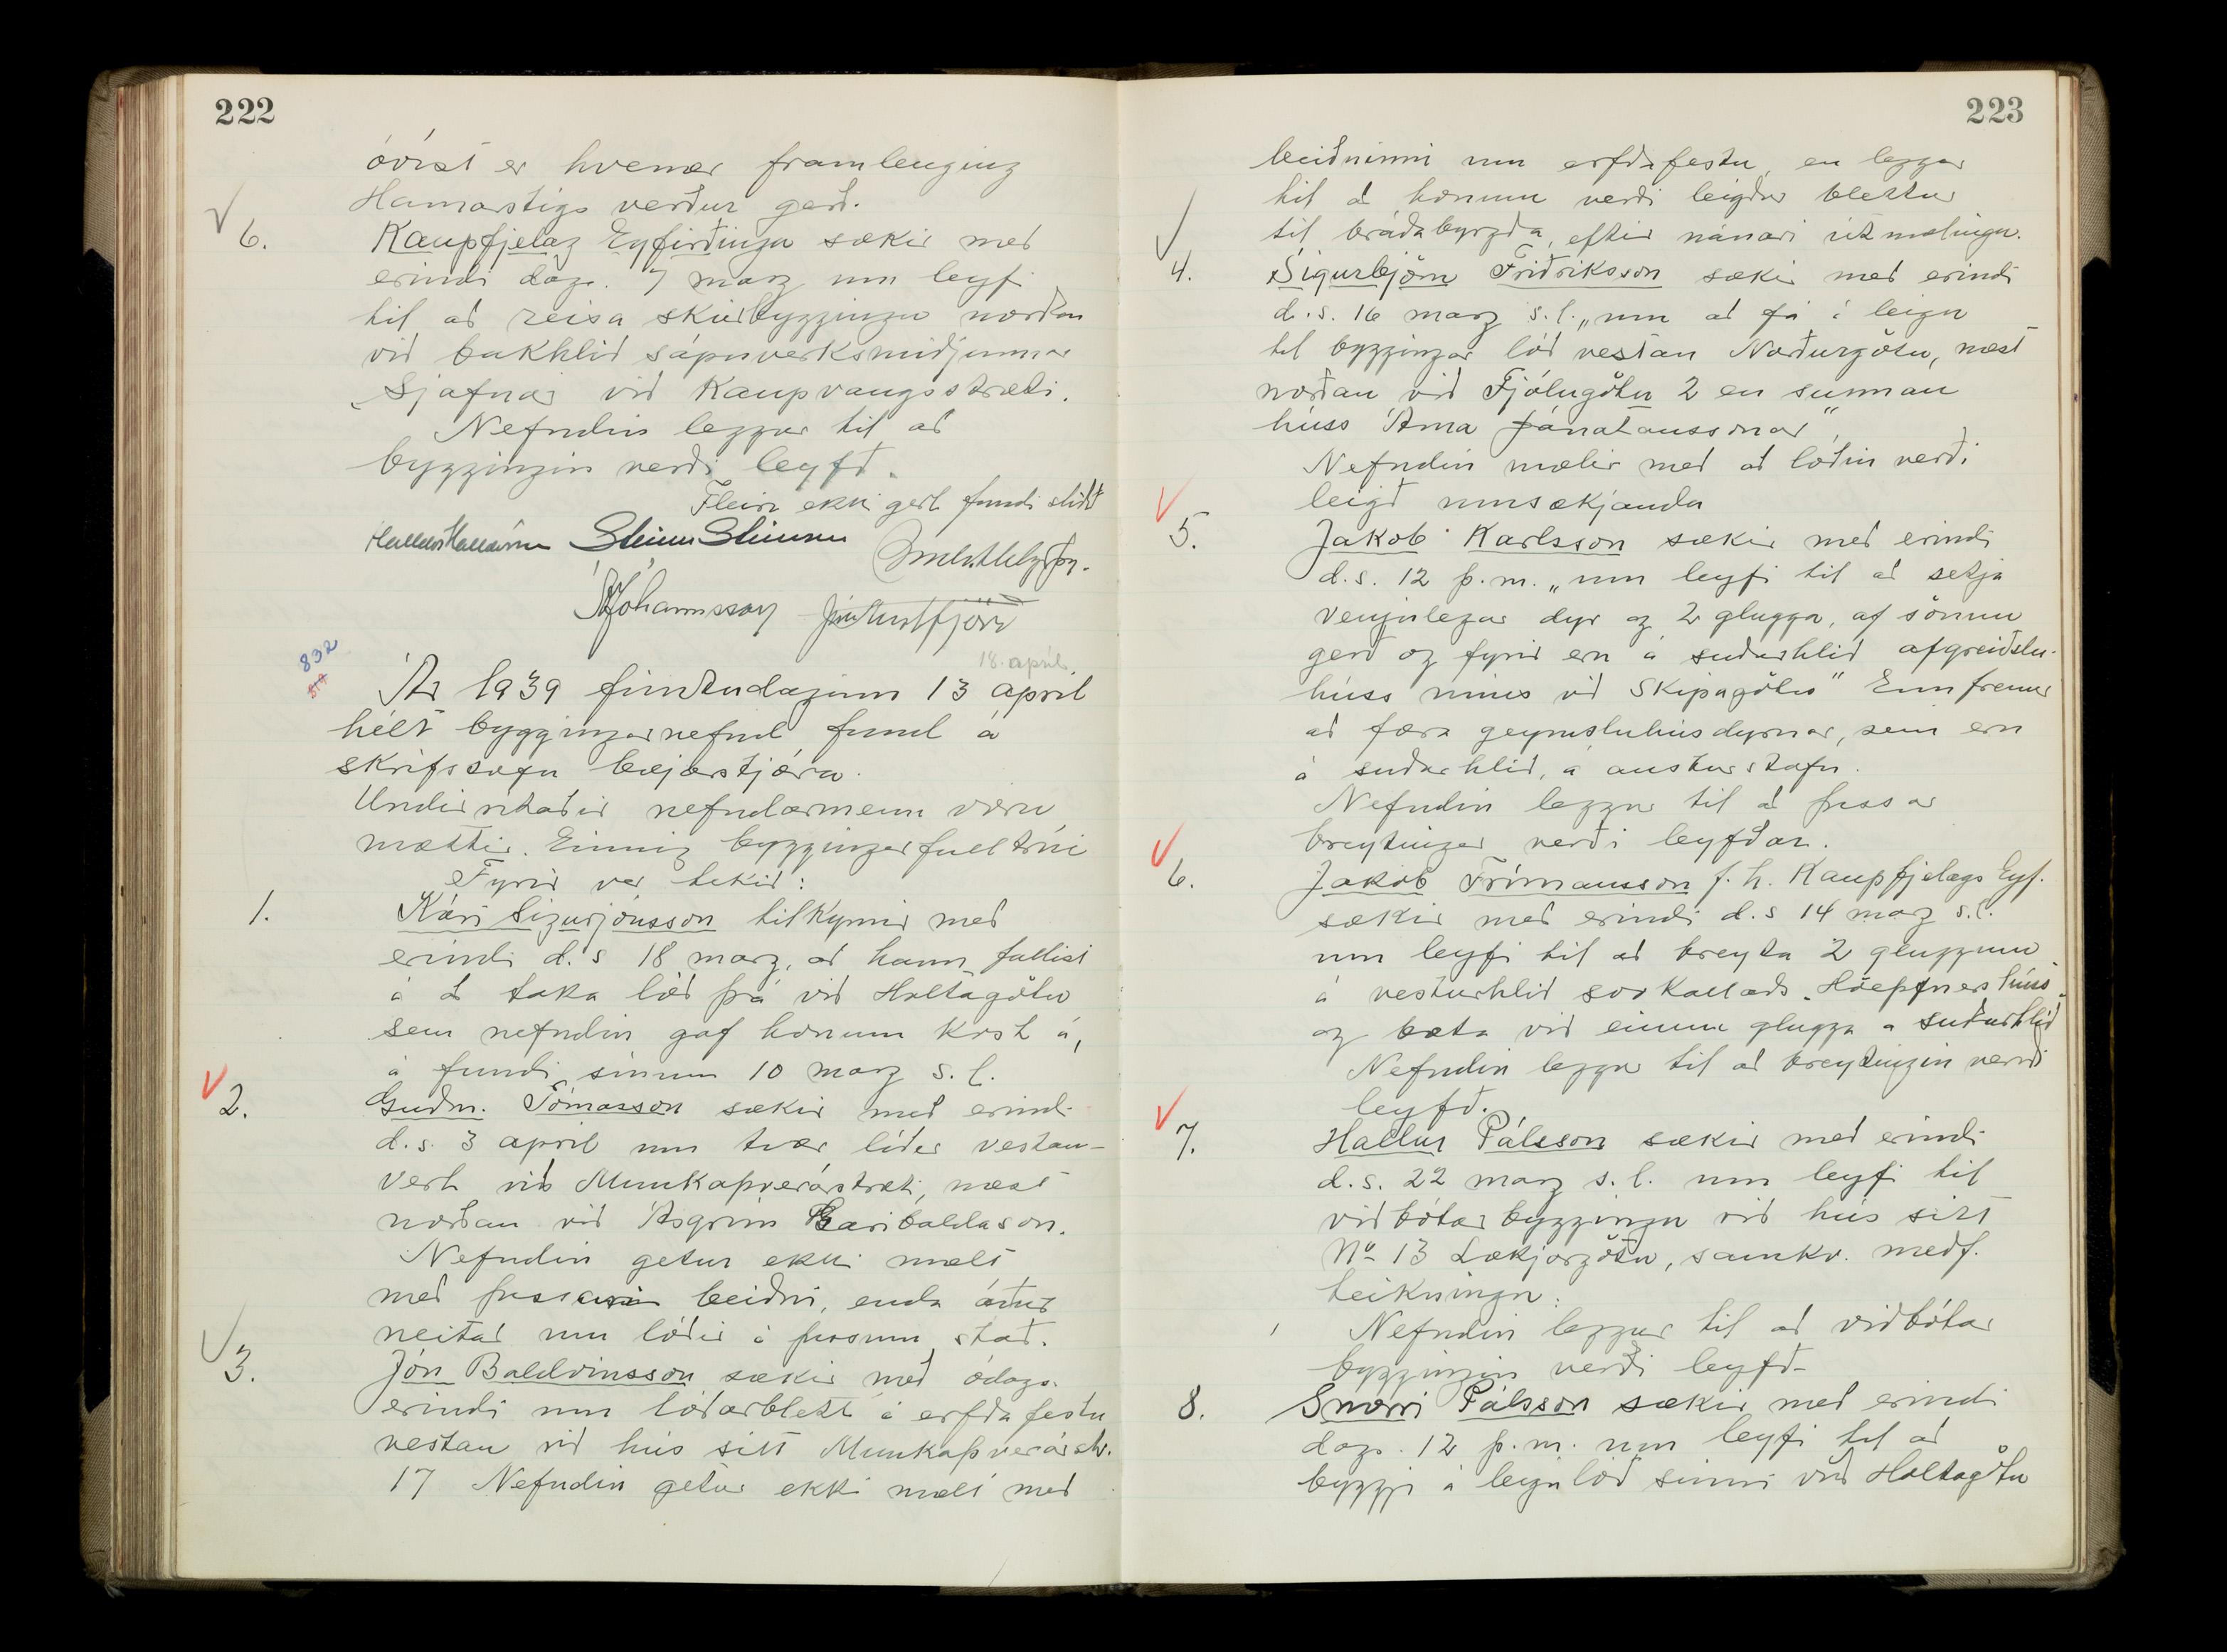 222
óvíst er hvenær framlenging
Hamarstígs verður gerð.
6. Kaupfjelag Eyfirðinga sækir með
erindi dags. 7 marz um leyfi
til að reisa skúrbyggingu norðan
við bakhlið sápuverksmiðjunnar
Sjafnar við Kaupvangsstræti.
Nefndin leggur til að
byggingin verði leyfð.
Fleira ekki gert fundi slitið
Halldór Halldórsson Steinn Steinsen
Jóhannsson
832
18. apríl.
Ár 1939 fimtudaginn 13 april
hélt byggingarnefnd fund á
skrifstofu bæjarstjóra.
Undirritaðir nefndarmenn voru
mættir. Einnig byggingarfulltrúi
Fyrir var tekið:
1. Kári Sigurjónsson tilkynnir með
erindi d.s 18 marz, að hann fallist
á að taka lóð þá við Holtagötu
sem nefndin gaf honum kost á,
á fundi sínum 10 marz s.l.
2. Guðm. Tómasson sækir með erindi
d.s. 3 april um tvær lóðir vestan-
vert við Munkaþverárstræti, næst
norðan við Ásgrím Garibaldason.
Nefndin getur ekki mælt
með þessari beiðni, enda áður
neitað um lóðir á þessum stað.
3. Jón Baldvinsson sækir með ódags.
erindi um lóðarblett á erfðafestu
vestan við hús sitt Munkaþverárstr.
17 Nefndin getur ekki mælt með
223
beiðninni um erfðafestu, en leggur
til að honum verði leigður blettur
til bráðabyrgða, eftir nánari útmælingu.
4. Sigurbjörn Friðriksson sækir með erindi
d.s. 16 marz s.l. „um að fá á leigu
til byggingar lóð vestan Norðurgötu, næst
norðan við Fjólugötu 2 en sunnan
húss Árna Jónatanssonar".
Nefndin mælir með að lóðin verði
leigð umsækjanda
5. Jakob Karlsson sækir með erindi
d.s. 12 þ.m. „um leyfi til að setja
venjulegar dyr og 2 glugga, af sömu
gerð og fyrir eru á suðurhlið afgreiðslu-
húss míns við Skipagötu" Ennfremur
að færa geymsluhúsdyrnar, sem eru
á suðurhlið, á austurstafn.
Nefndin leggur til að þessar
breytingar verði leyfðar.
6. Jakob Frímansson f.h. Kaupfjelags Eyf.
sækir með erindi d.s 14 marz s.l.
um leyfi til að breyta 2 gluggum
á vesturhlið svokallaðs „Höepfnershúss"
og bæta við einum glugga a suðurhlið
Nefndin leggur til að breytingin verði
leyfð.
7. Hallur Pálsson sækir með erindi
d.s. 22 marz s.l. um leyfi til
viðbótarbyggingu við hús sitt
No 13 Lækjargötu, samkv. meðf.
teikningu.
Nefndin leggur til að viðbótar
byggingin verði leyfð-
8. Snorri Pálsson sækir með erindi
dags. 12 þ.m. um leyfi til að
byggja á leigulóð sinni við Holtagötu